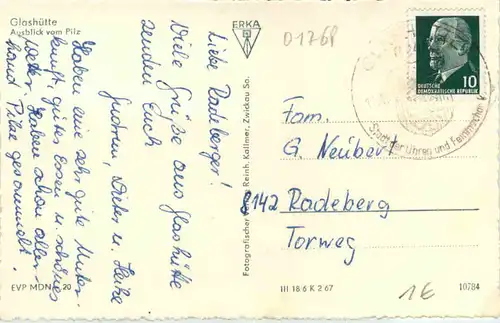 Glashütte
Ausblick vom Pilz
Liebe Radeberger!
Viele Grüße aus Glashütte
senden Euch
Gudrun, Dieter u. Heike
Haben eine sehr gute Unter-
kunft, gutes Essen u. schönes
Wetter. Haben schon aller-
hand Pilze gesammelt.
EVP MDN 0,20
ERKA
Fotografischer Reinh. Kallmer, Zwickau Sa.
01768
DEUTSCHE
DEMOKRATISCHE REPUBLIK
10
Stadt der Uhren und Feinmechanik
Fam.
G. Neubert
8142 Radeberg
Torweg
III 18 6 K 2 67
10784
1€